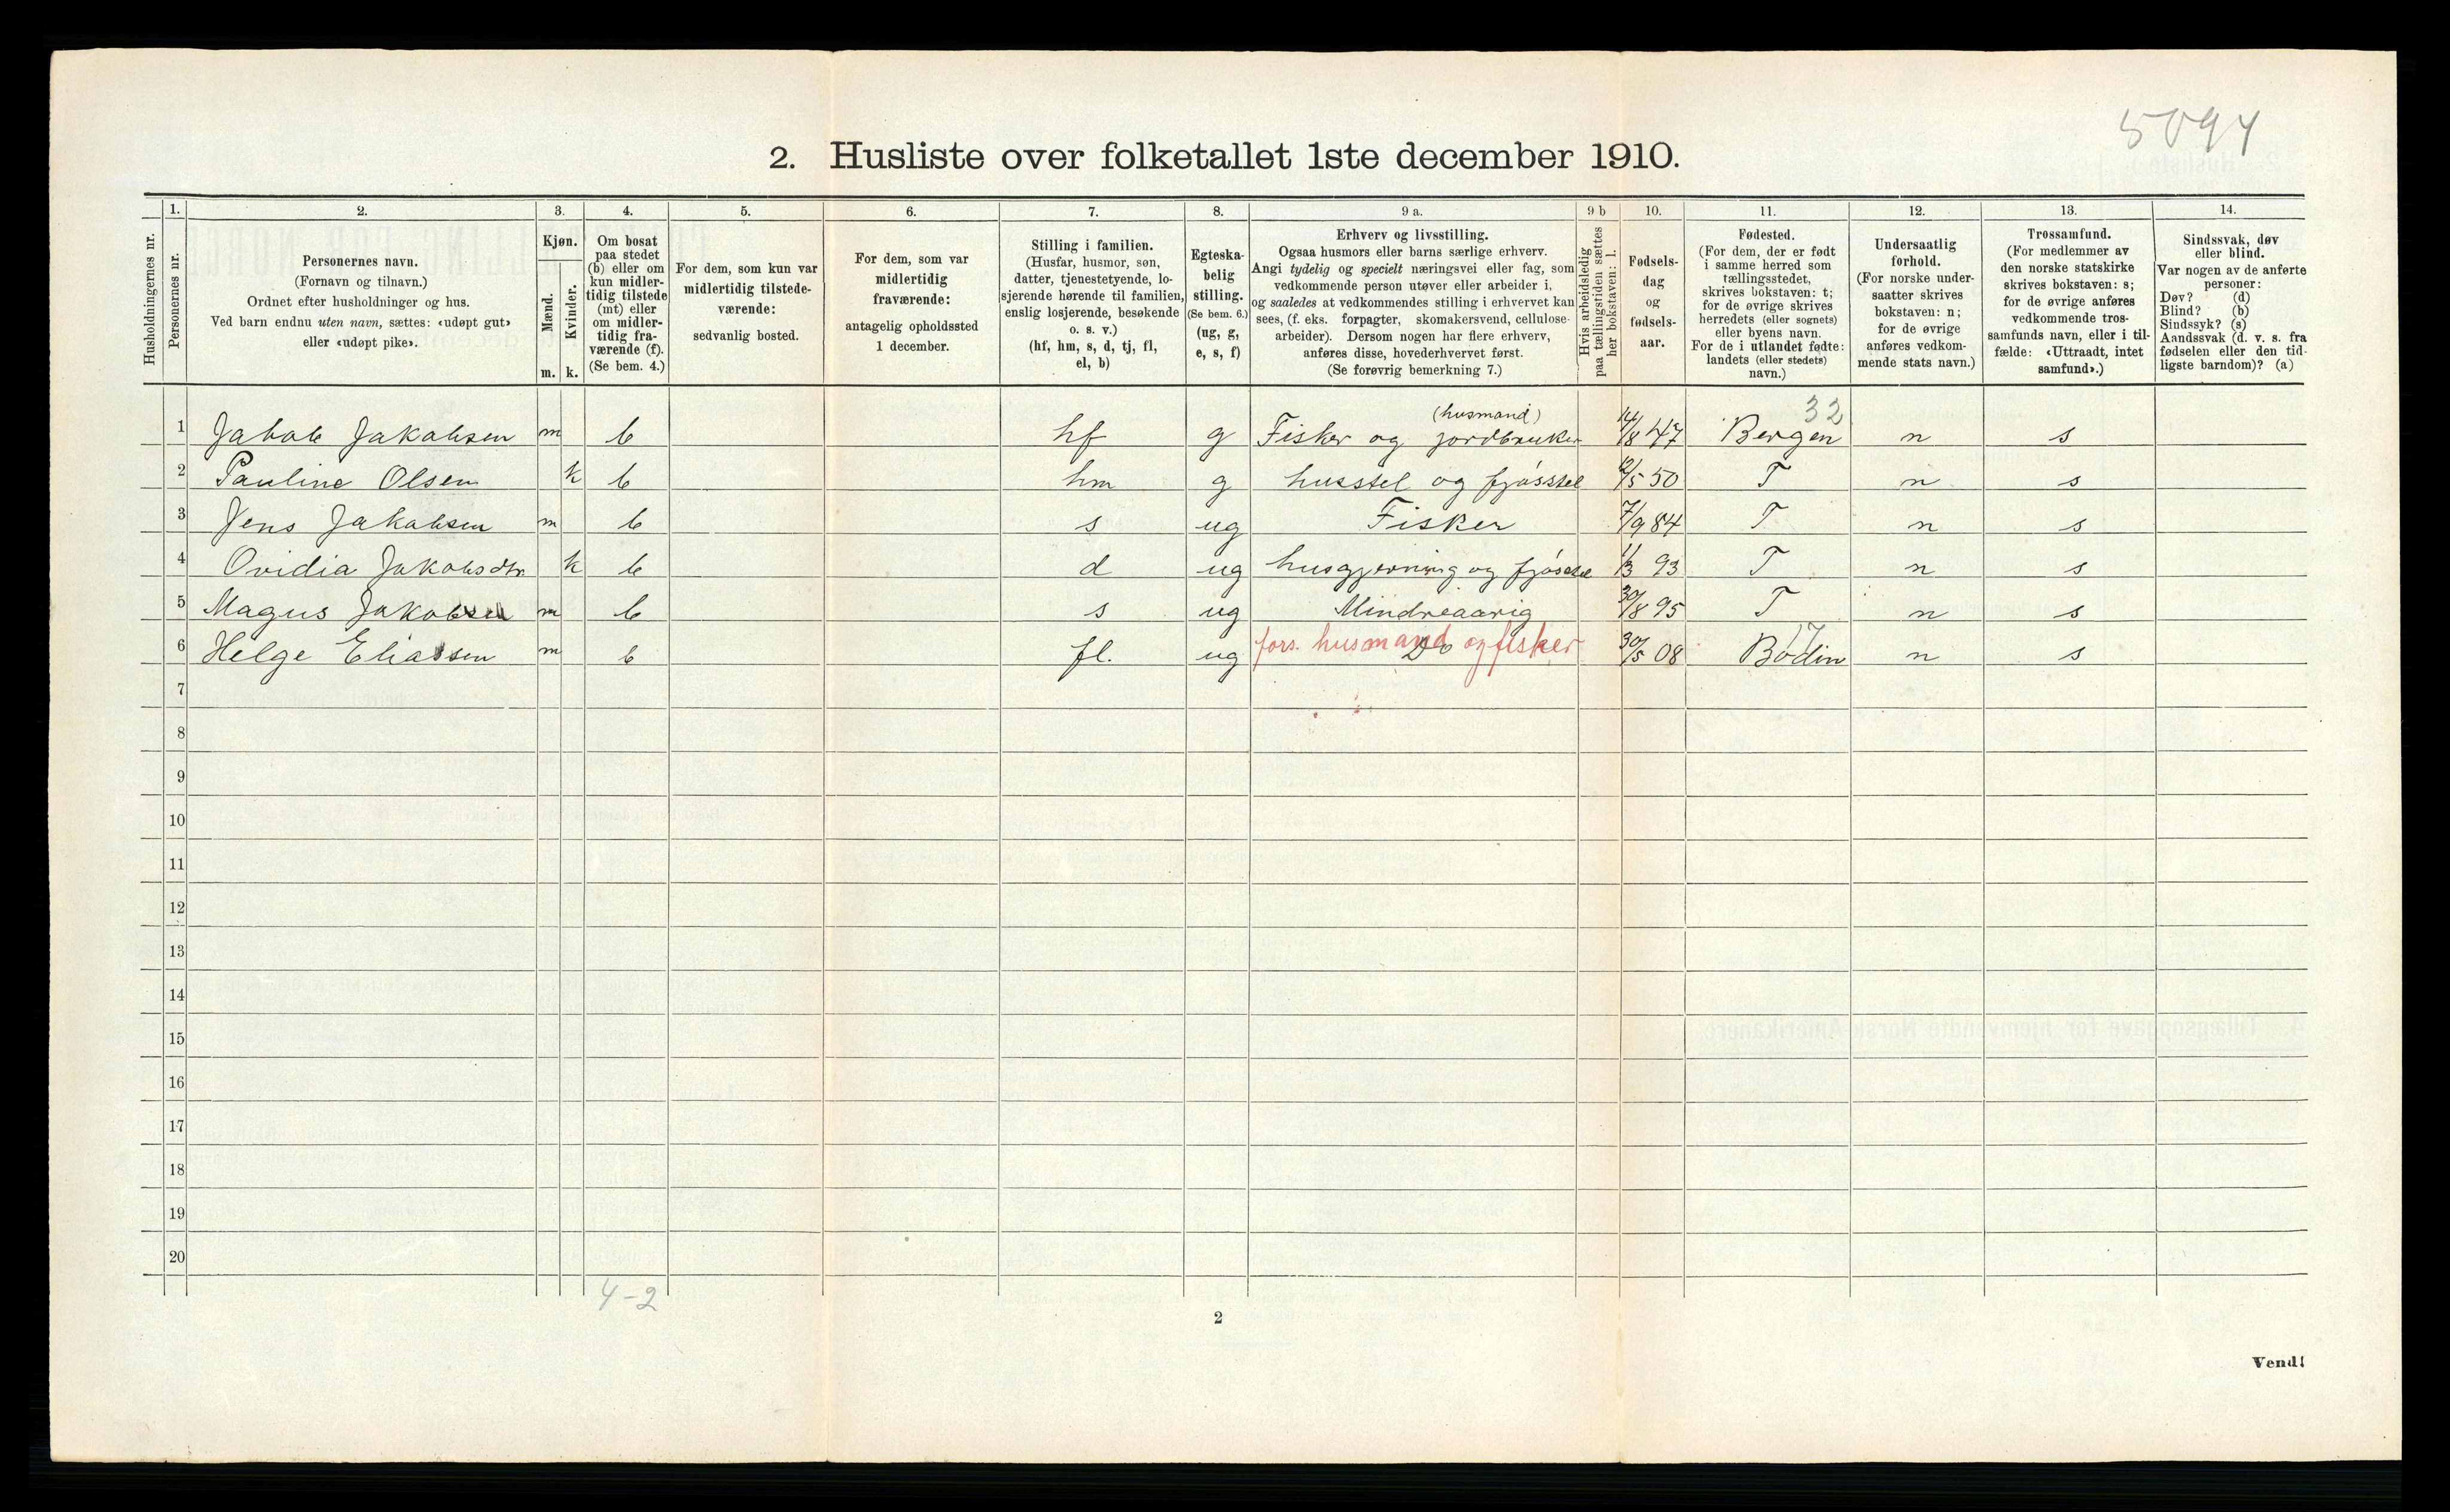 5094
2. Husliste over folketallet 1ste december 1910.
Husholdningernes nr.
1.
Personernes nr.
2.
Personernes navn.
(Fornavn og tilnavn.)
Ordnet efter husholdninger og hus.
Ved barn endnu uten navn, sættes: «udøpt gut»
eller «udøpt pike».
3.
Kjøn.
Mænd.
Kvinder.
m. k.
4.
Om bosat
paa stedet
(b) eller om
kun midler-
tidig tilstede
(mt) eller
om midler-
tidig fra-
værende (f).
(Se bem. 4.)
5.
For dem, som kun var
midlertidig tilstede-
værende:
sedvanlig bosted.
6.
For dem, som var
midlertidig
fraværende:
antagelig opholdssted
1 december.
7.
Stilling i familien.
(Husfar, husmor, søn,
datter, tjenestetyende, lo-
sjerende hørende til familien,
enslig losjerende, besøkende
o. s. v.)
(hf, hm, s, d, tj, fl,
el, b)
8.
Egteska-
belig
stilling.
(Se bem. 6.)
(ug, g,
e, s, f)
9 a.
Erhverv og livsstilling.
Ogsaa husmors eller barns særlige erhverv.
Angi tydelig og specielt næringsvei eller fag, som
vedkommende person utøver eller arbeider i,
og saaledes at vedkommendes stilling i erhvervet kan
sees, (f. eks. forpagter, skomakersvend, cellulose-
arbeider). Dersom nogen har flere erhverv,
anføres disse, hovederhvervet først.
(Se forøvrig bemerkning 7.)
9 b
Hvis arbeidsledig
paa tællingstiden sættes
her bokstaven: l.
10.
Fødsels-
dag
og
fødsels-
aar.
11.
Fødested.
(For dem, der er født
i samme herred som
tællingsstedet,
skrives bokstaven: t;
for de øvrige skrives
herredets (eller sognets)
eller byens navn.
For de i utlandet fødte:
landets (eller stedets)
navn.)
12.
Undersaatlig
forhold.
(For norske under-
saatter skrives
bokstaven: n;
for de øvrige
anføres vedkom-
mende stats navn.)
13.
Trossamfund.
(For medlemmer av
den norske statskirke
skrives bokstaven: s;
for de øvrige anføres
vedkommende tros-
samfunds navn, eller i til-
fælde: «Uttraadt, intet
samfund».)
14.
Sindssvak, døv
eller blind.
Var nogen av de anførte
personer:
Døv? (d)
Blind? (b)
Sindssyk? (s)
Aandssvak (d. v. s. fra
fødselen eller den tid-
ligste barndom)? (a)
(husmand) 32
1 Jakob Jakobsen m b hf g Fisker og jordbruker 14/8 47 Bergen n s
2 Pauline Olsen k b hm g husstel og fjøsstel 12/5 50 T n s
3 Jens Jakobsen m b s ug Fisker 7/9 84 T n s
4 Ovidia Jakobsdtr. k b d ug husgjerning og fjøsstel 1/3 93 T n s
5 Magus Jakobsen m b s ug Mindreaarig 30/8 95 T n s
17
6 Helge Eliassen m b fl. ug Do fors. husmand og fisker 30/5 08 Bodin n s
7
8
9
10
11
12
13
14
15
16
17
18
19
20
4-2
2
Vend!